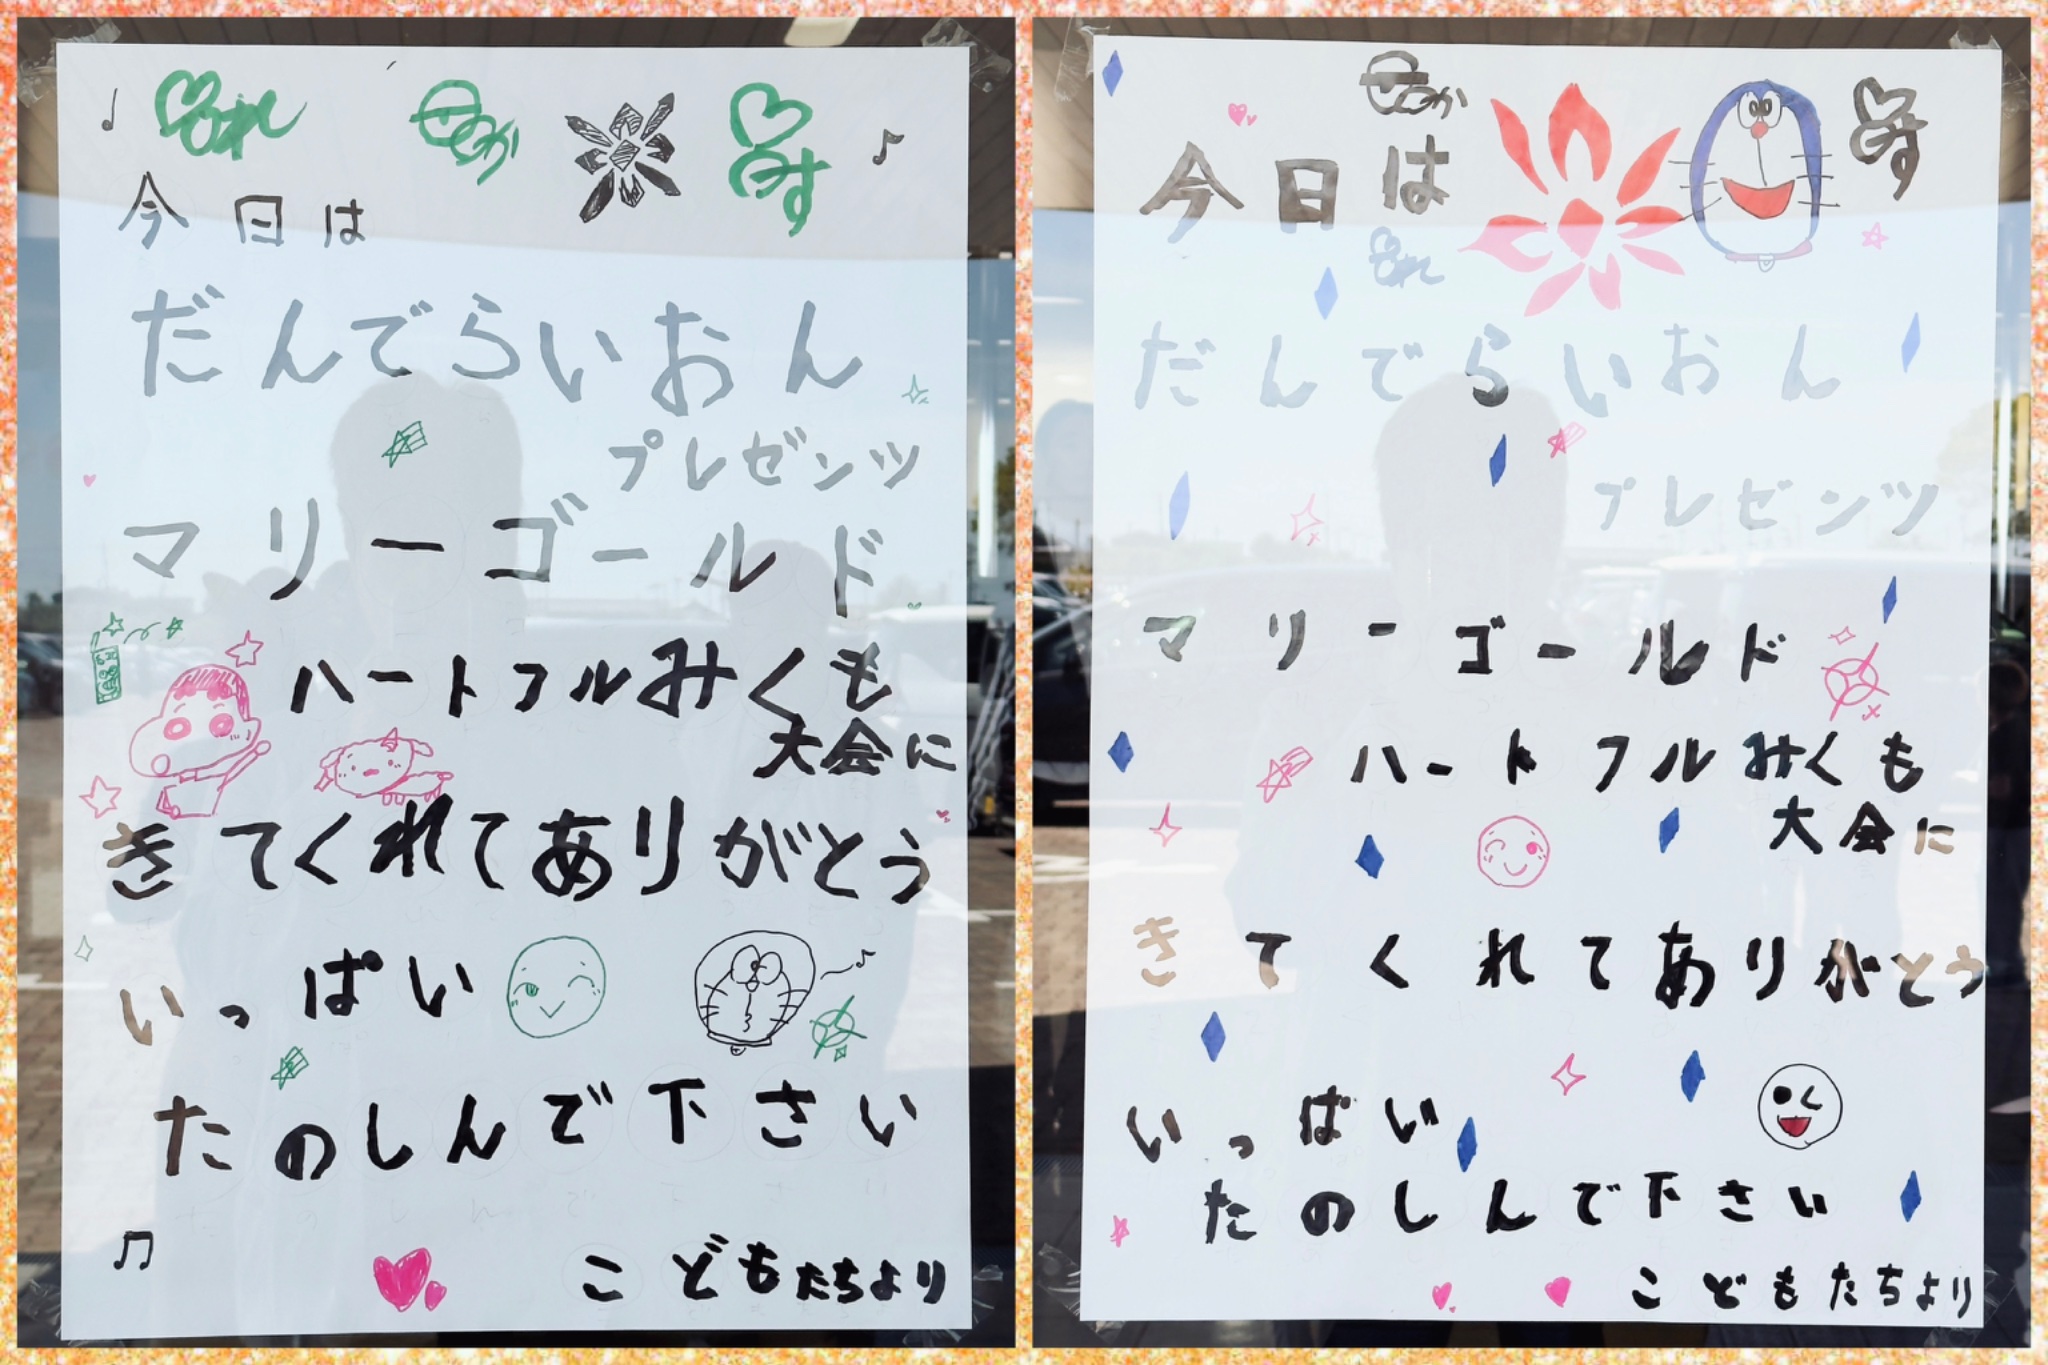 今日は
だんでらいおん
プレゼンツ
マリーゴールド
ハートフルみくも
大会に
きてくれてありがとう
いっぱい
たのしんで下さい
こどもたちより
今日は
だんでらいおん
プレゼンツ
マリーゴールド
ハートフルみくも
大会に
きてくれてありがとう
いっぱい
たのしんで下さい
こどもたちより